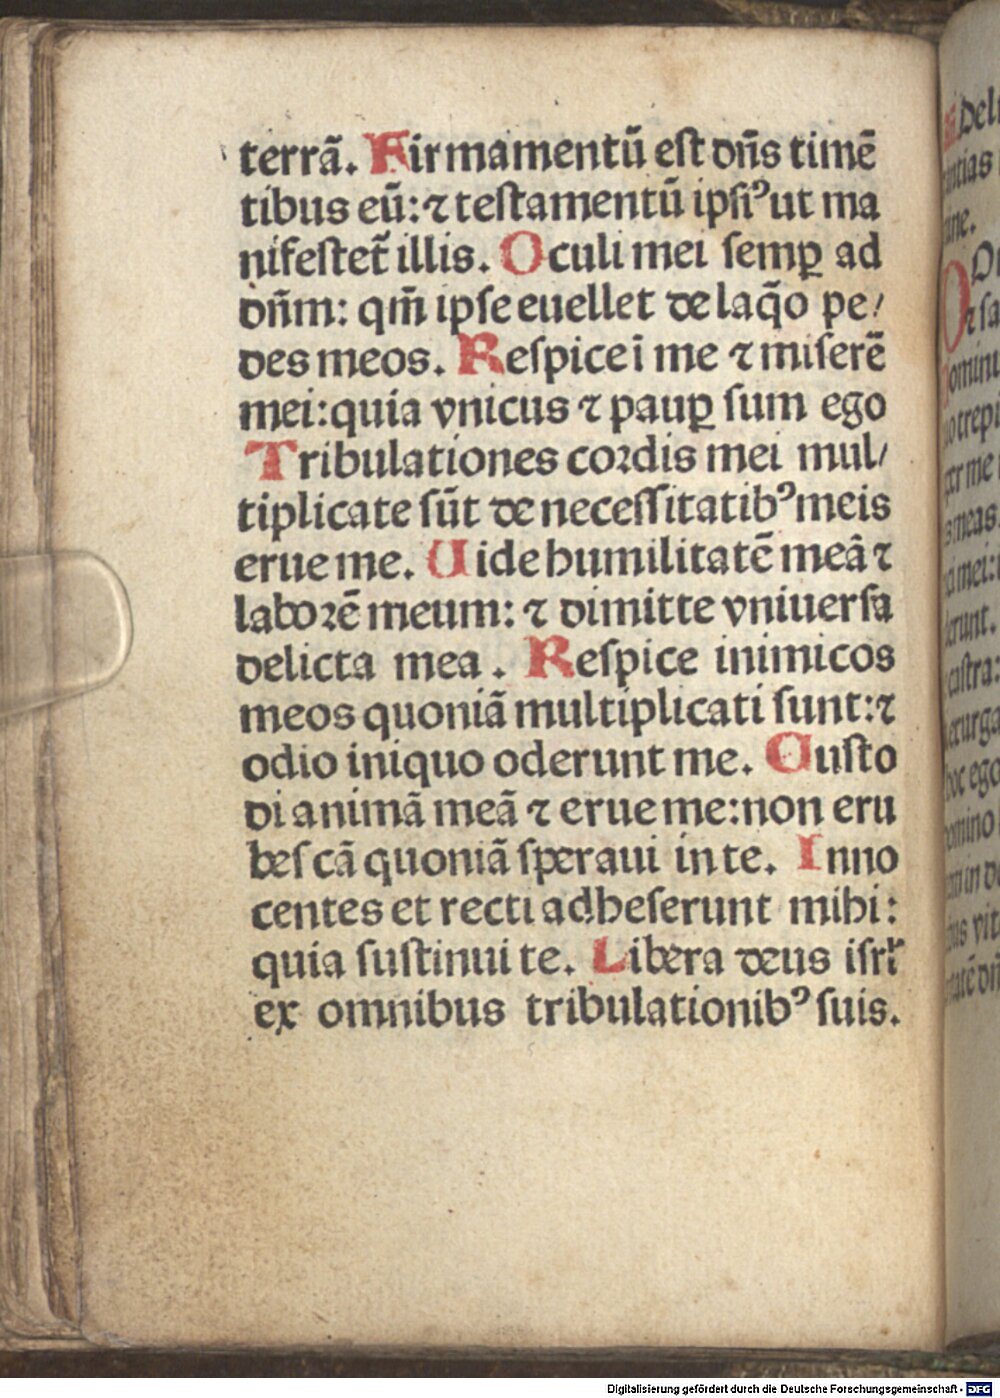 terrã. Firmamentũ eſt dñs timẽ
tibus eũ: ⁊ teſtamentũ ipſiꝰ ut ma
nifeſtet̃ illis. Oculi mei ſemꝑ ad
dñm: qm̃ ipſe euellet de laq̃o pe/
des meos. Reſpice ĩ me ⁊ miſerẽ
mei: quia vnicus ⁊ paupꝑ ſum ego
Tribulationes coꝛdis mei mul/
tiplicate ſũt de neceſſitatibꝰ meis
erue me. Uide humilitatẽ meã ⁊
laboꝛẽ meum: ⁊ dimitte vniuerſa
delicta mea. Reſpice inimicos
meos quoniã multiplicati ſunt: ⁊
odio iniquo oderunt me. Cuſto
di animã meã ⁊ erue me: non eru
beſcã quoniã ſperaui in te. Inno
centes et recti adheſerunt mihi:
quia ſuſtinui te. Libera deus iſrl̃
ex omnibus tribulationibꝰ ſuis.
Digitalisierung gefördert durch die Deutsche Forschungsgemeinschaft - DFG